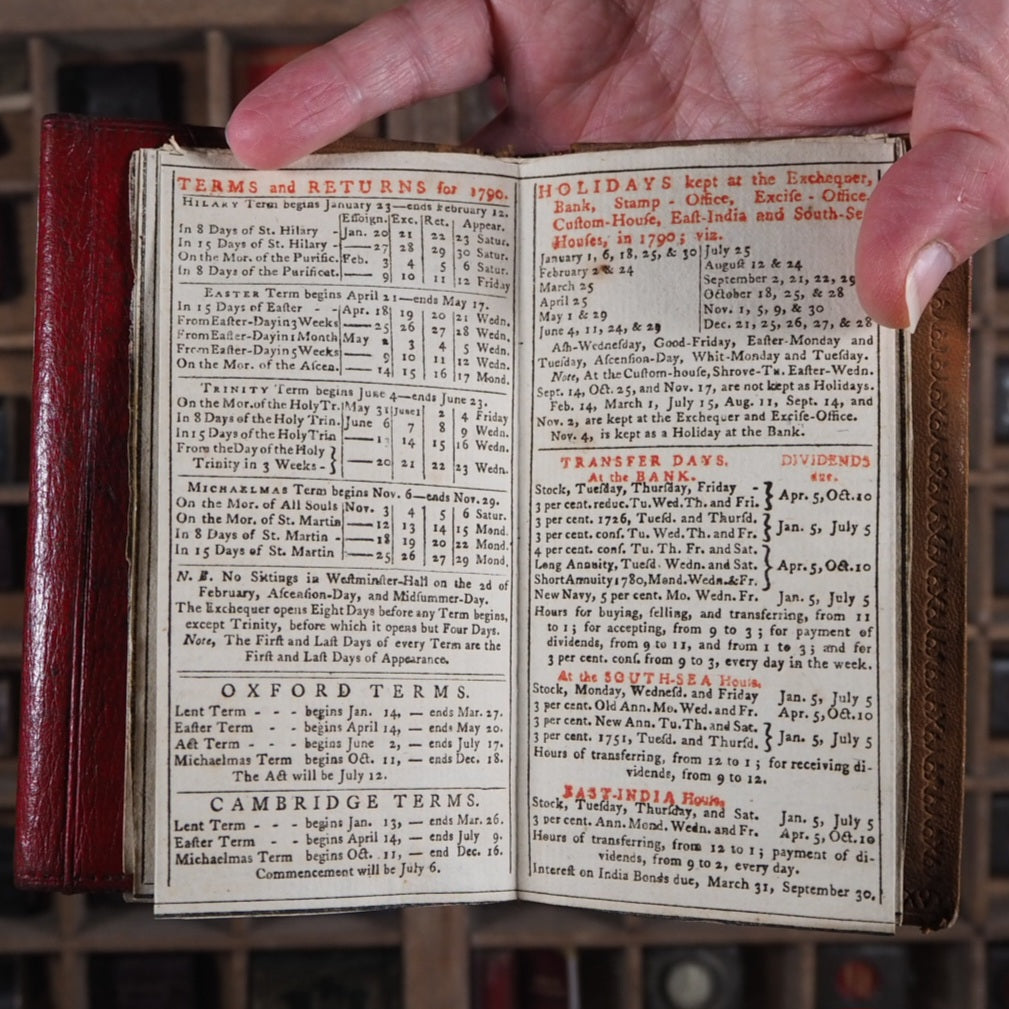 TERMS and RETURNS for 1790.
HILARY Term begins January 23—ends February 12.
Eſſoign. Exc. Ret. Appear.
In 8 Days of St. Hilary - Jan. 20 21 22 23 Satur.
In 15 Days of St. Hilary - —27 28 29 30 Satur.
On the Mor. of the Purific. Feb. 3 4 5 6 Satur.
In 8 Days of the Purificat. — 9 10 11 12 Friday
EASTER Term begins April 21—ends May 17.
In 15 Days of Eaſter - - Apr. 18 19 20 21 Wedn.
From Eaſter-Day in 3 Weeks —25 26 27 28 Wedn.
From Eaſter-Day in 1 Month May 2 3 4 5 Wedn.
From Eaſter-Day in 5 Weeks — 9 10 11 12 Wedn.
On the Mor. of the Aſcen. —14 15 16 17 Mond.
TRINITY Term begins June 4—ends June 23.
On the Mor. of the Holy Tr. May 31 June 1 2 4 Friday
In 8 Days of the Holy Trin. June 6 7 8 9 Wedn.
In 15 Days of the Holy Trin — 13 14 15 16 Wedn.
From the Day of the Holy
Trinity in 3 Weeks - —20 21 22 23 Wedn.
MICHAELMAS Term begins Nov. 6—ends Nov. 29.
On the Mor. of All Souls Nov. 3 4 5 6 Satur.
On the Mor. of St. Martin —12 13 14 15 Mond.
In 8 Days of St. Martin - —18 19 20 22 Mond.
In 15 Days of St. Martin —25 26 27 29 Mond.
N. B. No Sittings in Weſtminſter-Hall on the 2d of
February, Aſcenſion-Day, and Midſummer-Day.
The Exchequer opens Eight Days before any Term begins,
except Trinity, before which it opens but Four Days.
Note, The Firſt and Laſt Days of every Term are the
Firſt and Laſt Days of Appearance.
OXFORD TERMS.
Lent Term - - - begins Jan. 14, — ends Mar. 27.
Eaſter Term - - begins April 14, — ends May 20.
Act Term - - - begins June 2, — ends July 17.
Michaelmas Term begins Oct. 11, — ends Dec. 18.
The Act will be July 12.
CAMBRIDGE TERMS.
Lent Term - - - begins Jan. 13, — ends Mar. 26.
Eaſter Term - - begins April 14, — ends July 9.
Michaelmas Term begins Oct. 11, — end Dec. 16.
Commencement will be July 6.
HOLIDAYS kept at the Exchequer,
Bank, Stamp-Office, Exciſe-Office,
Cuſtom-Houſe, Eaſt-India and South-Se
Houſes, in 1790; viz.
January 1, 6, 18, 25, & 30
February 2 & 24
March 25
April 25
May 1 & 29
June 4, 11, 24, & 29
July 25
Auguſt 12 & 24
September 2, 21, 22, 29
October 18, 25, & 28
Nov. 1, 5, 9, & 30
Dec. 21, 25, 26, 27, & 28
Aſh-Wedneſday, Good-Friday, Eaſter-Monday and
Tueſday, Aſcenſion-Day, Whit-Monday and Tueſday.
Note, At the Cuſtom-houſe, Shrove-Tu. Eaſter-Wedn.
Sept. 14, Oct. 25, and Nov. 17, are not kept as Holidays.
Feb. 14, March 1, July 15, Aug. 11, Sept. 14, and
Nov. 2, are kept at the Exchequer and Exciſe-Office.
Nov. 4, is kept as a Holiday at the Bank.
TRANSFER DAYS. DIVIDENDS
At the BANK. due.
Stock, Tueſday, Thurſday, Friday -
3 per cent. reduc. Tu. Wed. Th. and Fri. Apr. 5, Oct. 10
3 per cent. 1726, Tueſd. and Thurſd.
3 per cent. conſ. Tu. Wed. Th. and Fr. Jan. 5, July 5
4 per cent. conſ. Tu. Th. Fr. and Sat.
Long Annuity, Tueſd. Wedn. and Sat. Apr. 5, Oct. 10
Short Annuity 1780, Mond. Wedn. & Fr.
New Navy, 5 per cent. Mo. Wedn. Fr. Jan. 5, July 5
Hours for buying, ſelling, and transferring, from 11
to 1; for accepting, from 9 to 3; for payment of
dividends, from 9 to 11, and from 1 to 3; and for
3 per cent. conſ. from 9 to 3, every day in the week.
At the SOUTH-SEA Houſe,
Stock, Monday, Wedneſd. and Friday Jan. 5, July 5
3 per cent. Old Ann. Mo. Wed. and Fr. Apr. 5, Oct. 10
3 per cent. New Ann. Tu. Th. and Sat.
3 per cent. 1751, Tueſd. and Thurſd. Jan. 5, July 5
Hours of transferring, from 12 to 1; for receiving di-
vidends, from 9 to 12.
EAST-INDIA Houſe,
Stock, Tueſday, Thurſday, and Sat. Jan. 5, July 5
3 per cent. Ann. Mond. Wedn. and Fr. Apr. 5, Oct. 10
Hours of transferring, from 12 to 1; payment of di-
vidends, from 9 to 2, every day.
Intereſt on India Bonds due, March 31, September 30.